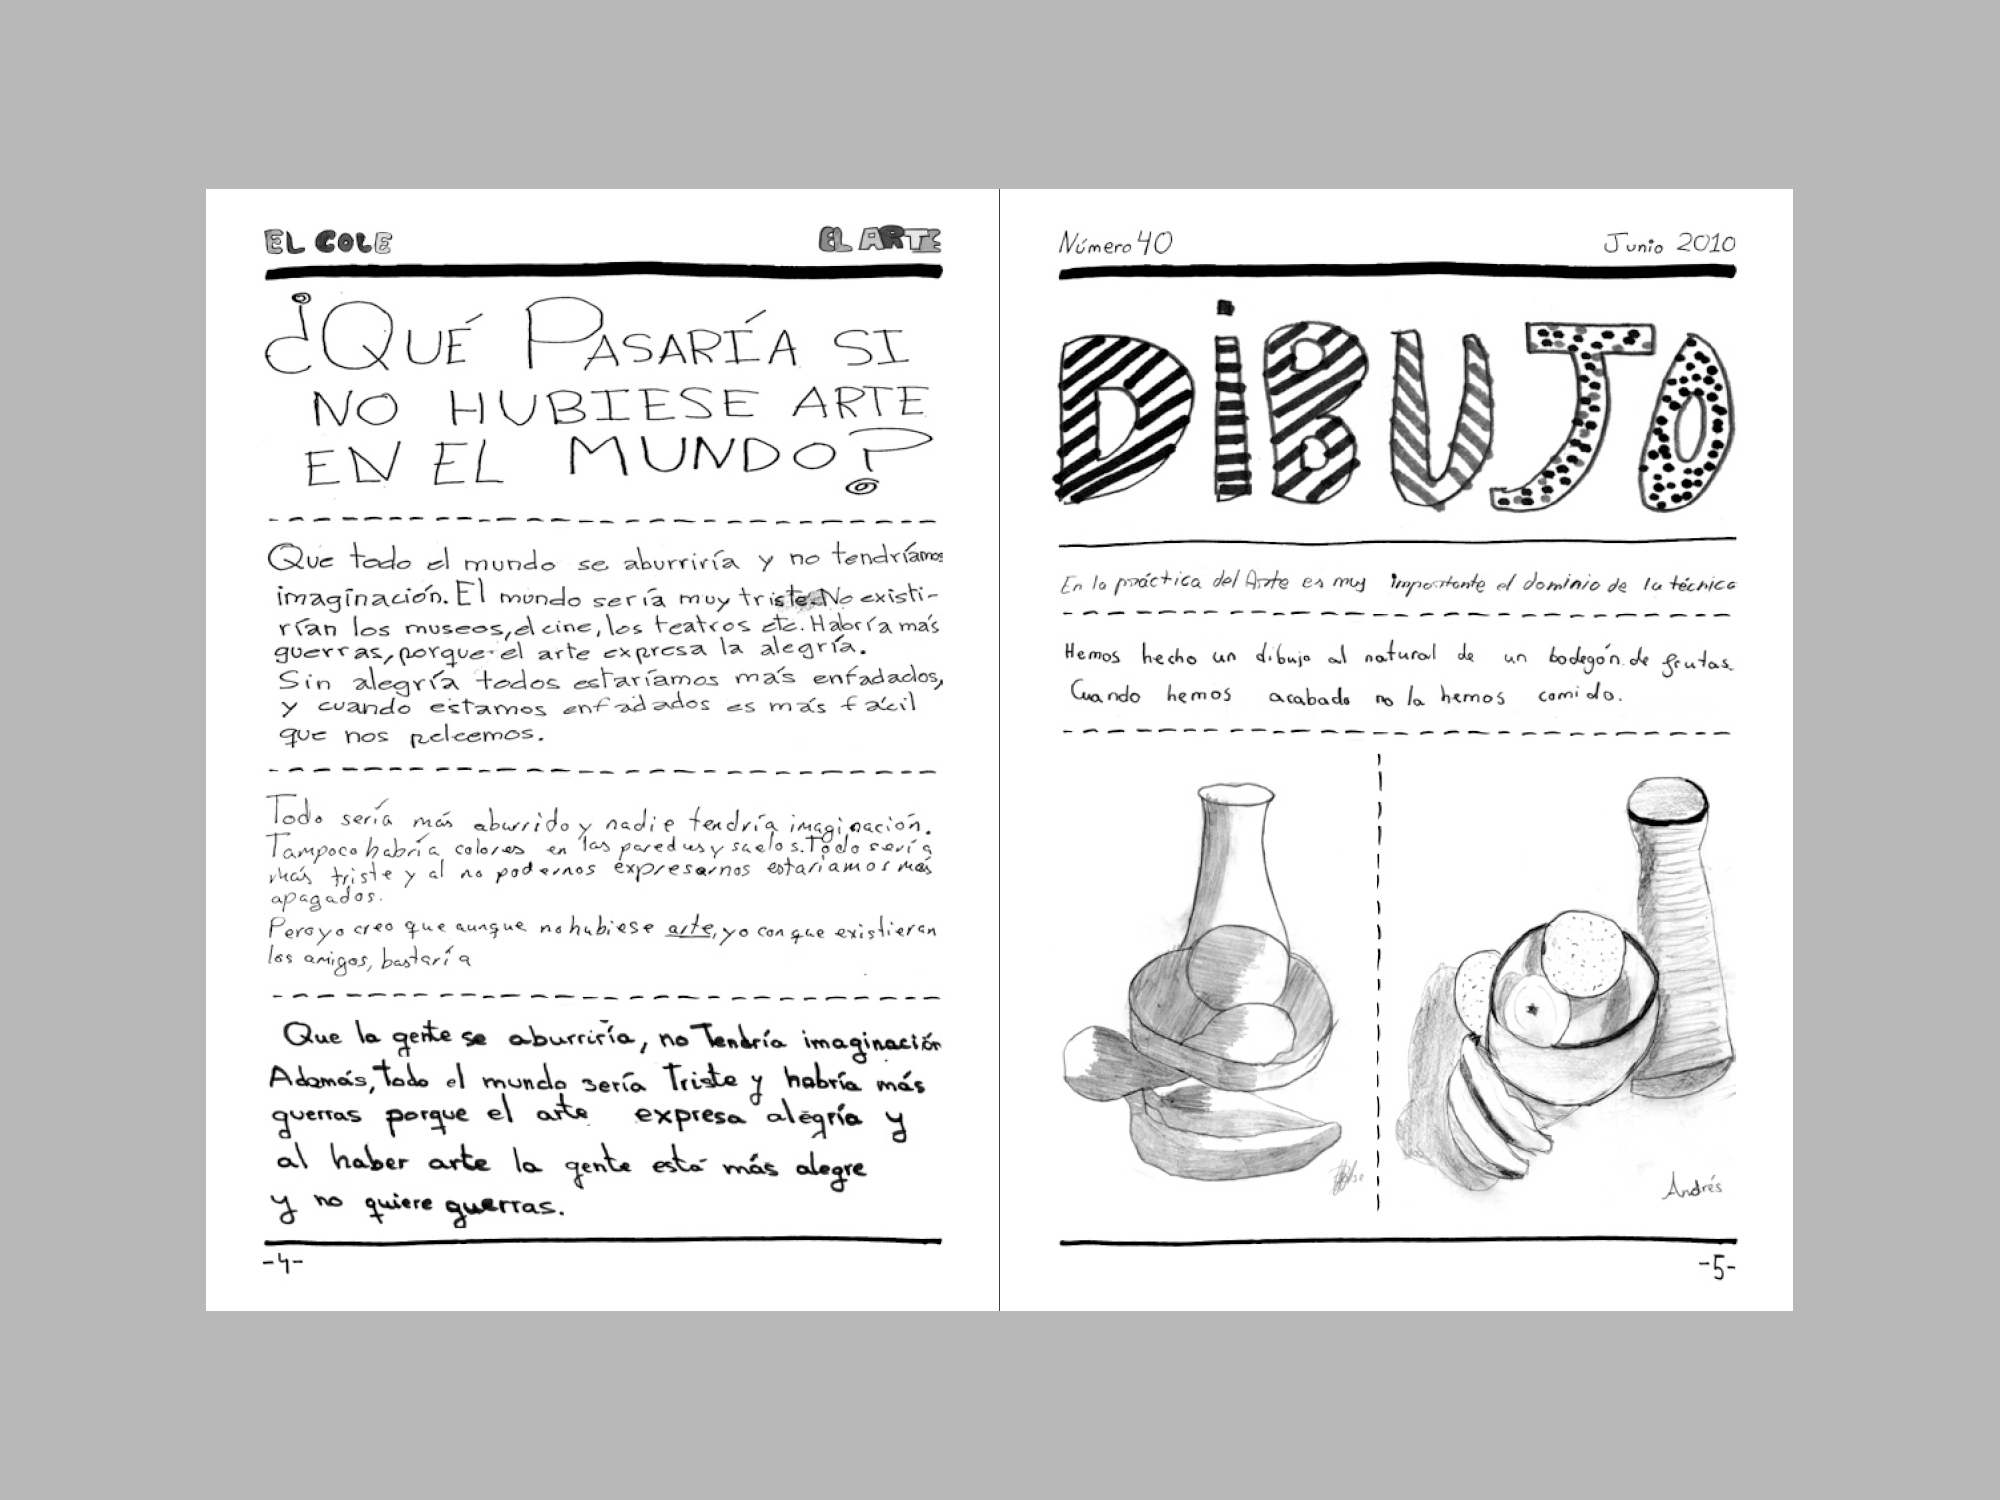 EL COLE EL ARTE
¿QUÉ PASARÍA SI
NO HUBIESE ARTE
EN EL MUNDO?
Que todo el mundo se aburriría y no tendríamos
imaginación. El mundo sería muy triste. No existi-
rían los museos, el cine, los teatros etc. Habría más
guerras, porque el arte expresa la alegría.
Sin alegría todos estaríamos más enfadados,
y cuando estamos enfadados es más fácil
que nos peleemos.
Todo sería más aburrido y nadie tendría imaginación.
Tampoco habría colores en las paredes y suelos. Todo sería
más triste y al no podernos expresarnos estaríamos más
apagados.
Pero yo creo que aunque no hubiese arte, yo con que existieran
los amigos, bastaría
Que la gente se aburriría, no Tendría imaginación
Además, todo el mundo sería Triste y habría más
guerras porque el arte expresa alegría y
al haber arte la gente está más alegre
y no quiere guerras.
-4-
Número 40 Junio 2010
DiBUJO
En la práctica del Arte es muy importante el dominio de la técnica
Hemos hecho un dibujo al natural de un bodegón de frutas.
Cuando hemos acabado no la hemos comido.
Andrés
-5-